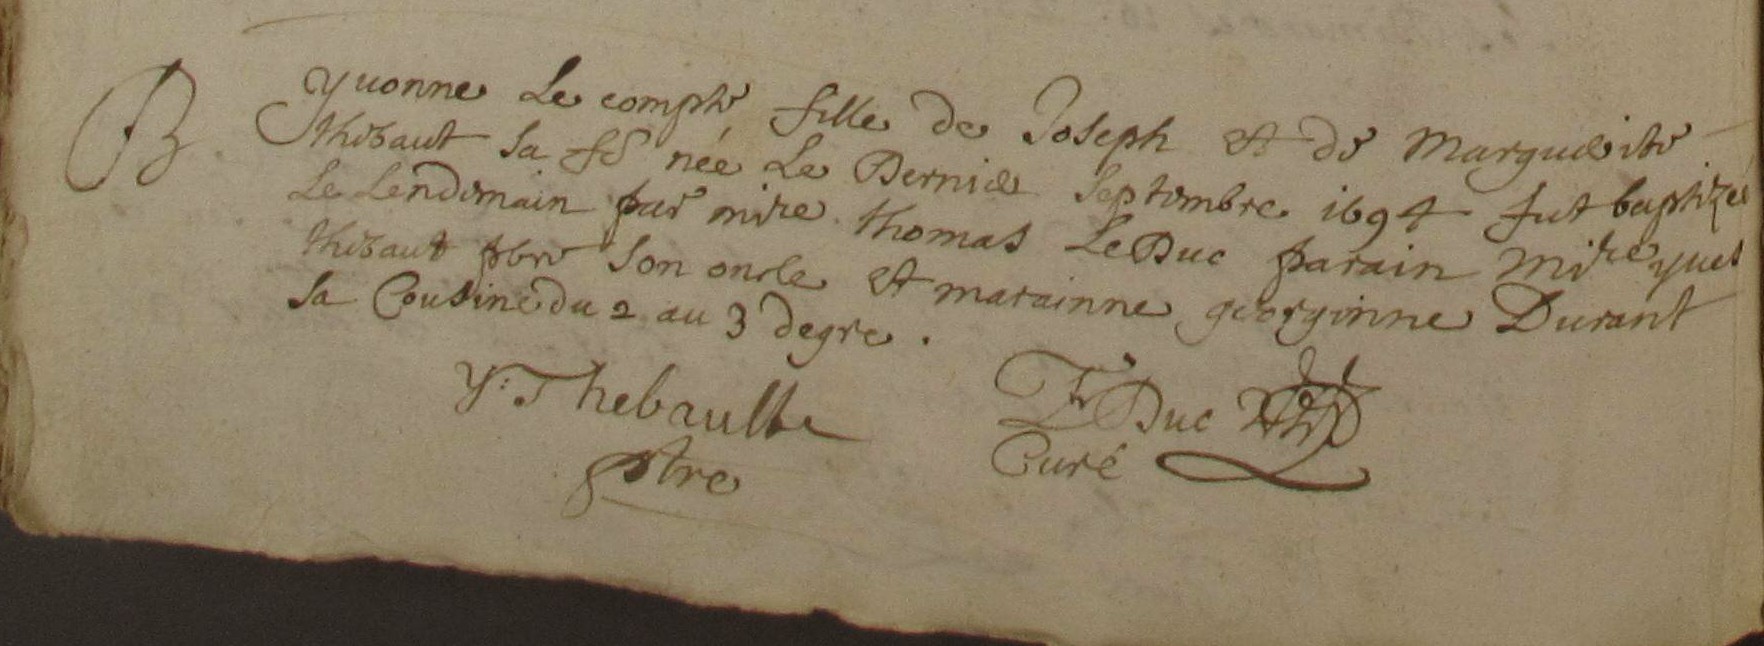 B
yvonne Le compte fille de Joseph et de Marguerite
thibaut sa fe née Le Dernier septembre 1694 fut baptizee
Le Lendemain par mire thomas LeDuc parain mire yves
thibaut pbre son oncle et marainne georginne Durant
sa Cousine du 2 au 3 degre.
Y: Thebault
T LeDuc
pbtre
Curé